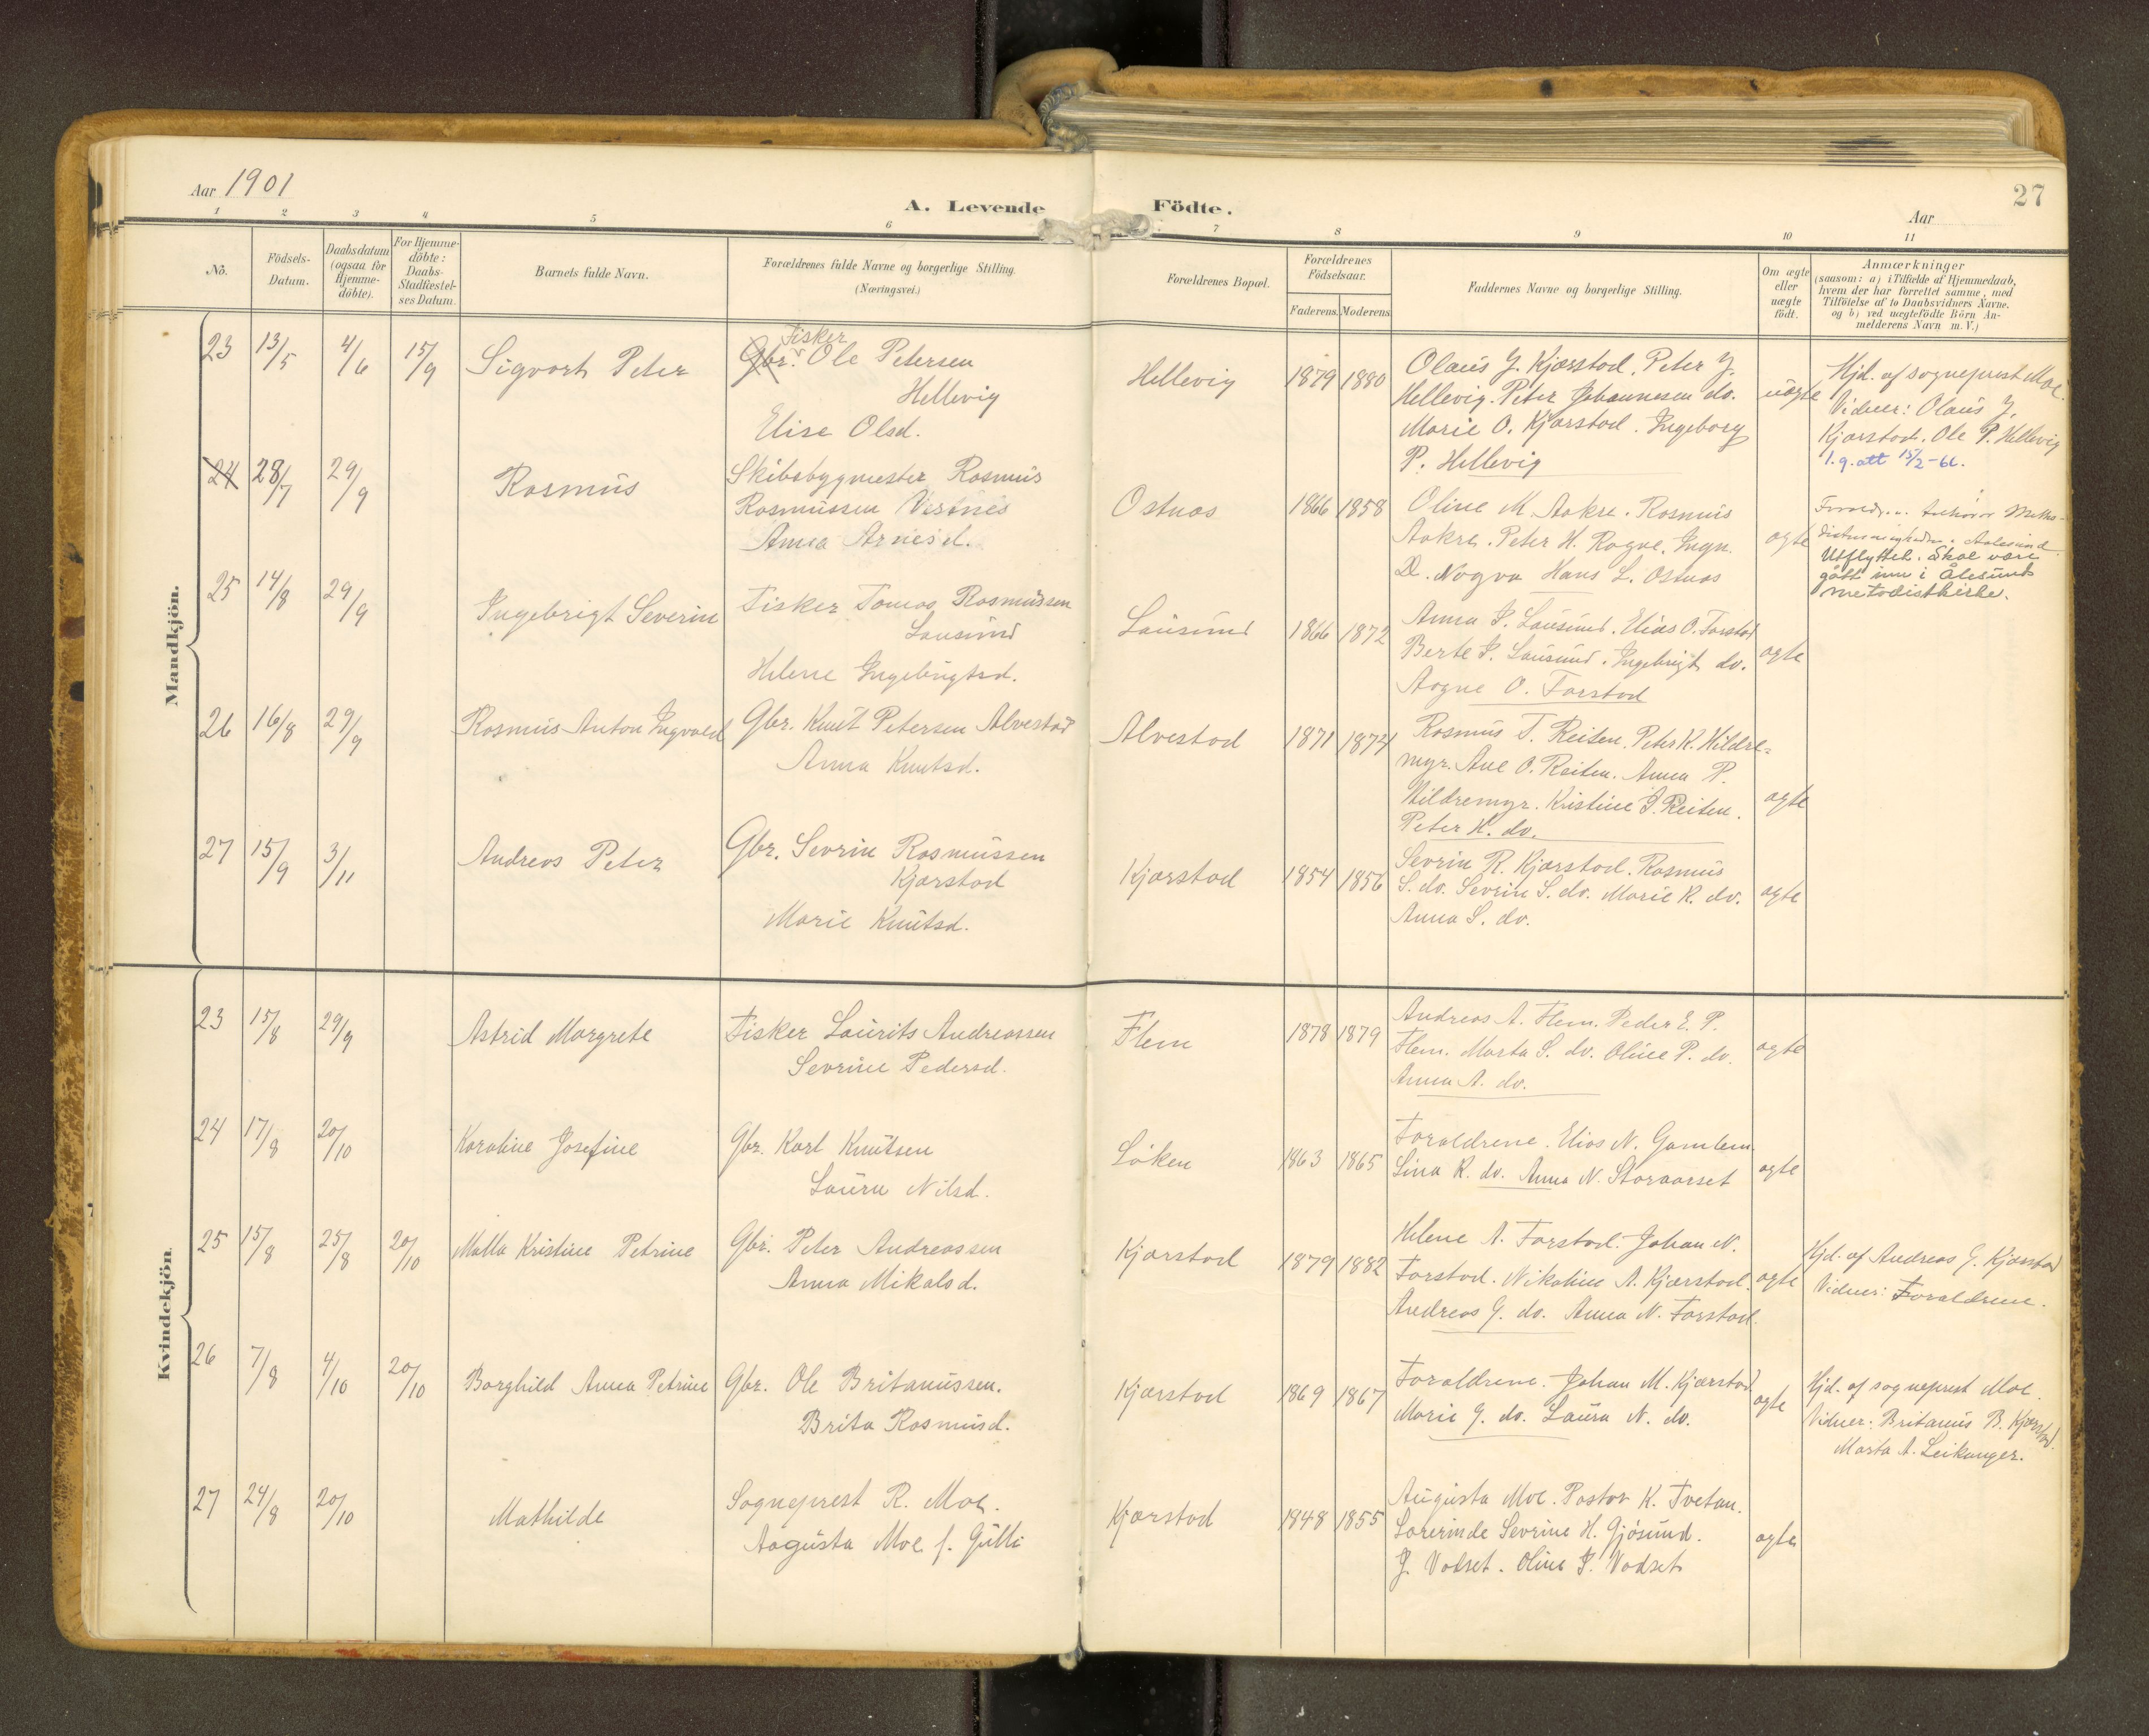 Aar 1901
A. Levende Födte.
Aar
27
1 2 3 4 5 6 7 8 9 10 11
No.
Födsels-Datum.
Daabsdatum (ogsaa for Hjemme-döbte).
For Hjemme-döbte: Daabs-Stadfæstel-ses Datum.
Barnets fulde Navn.
Forældrenes fulde Navne og borgerlige Stilling. (Næringsvei.)
Forældrenes Bopæl.
Forældrenes Födselsaar.
Faderens. Moderens
Faddernes Navne og borgerlige Stilling.
Om ægte eller uægte födt.
Anmærkninger
(saasom: a) i Tilfælde af Hjemmedaab,
hvem der har forrettet samme, med
Tilföielse af to Daabsvidners Navne.
og b) ved uægtefödte Börn An-
melderens Navn m. V.)
Mandkjön.
23 13/5 4/6 15/9 Sigvart Peter
Fisker
Gbr. Ole Petersen
Hellevig
Elise Olsd.
Hellevig 1879 1880
Olaus J. Kjærstad. Peter J.
Hellevig. Peter Johannesen do.
Marie O. Kjærstad. Ingeborg
P. Hellevig
uægte
Hjd. af sogneprest Moe.
Vidner: Olaus J.
Kjærstad. Ole P. Hellevig
1.g. att 15/2-66.
24 28/7 29/9 Rasmus
Skibsbygmester Rasmus
Rasmussen Vestnes
Anna Arnesd.
Ostnas 1866 1858
Oline M. Aakre. Rasmus
Aakre. Peter H. Rogne. Ingn.
D. Nogva Hans L. Ostnas
ægte
Utflyttet. Skal være
gått inn i Ålesund
metodistkirke.
25 14/8 29/9 Ingebrigt Severin
Fisker Tomas Rasmussen
Lausund
Helene Ingebrigtsd.
Lausund 1866 1872
Anna P. Lausund. Elias O. Farstad
Berte P. Lausund. Ingebrigt do.
Aagne O. Farstad
ægte
26 16/8 29/9 Rasmus Anton Ingvald
Gbr. Knut Petersen Alvestad
Anna Knutsd.
Alvestad 1871 1874
Rasmus T. Reiten. Peter K. Hildre-
myr. Ane O. Reiten. Anna P.
Hildremyr. Kristine P. Reiten.
Peter K. do.
ægte
27 15/9 3/11 Andreas Peter
Gbr. Sevrin Rasmussen
Kjærstad
Marie Knutsd.
Kjærstad 1854 1856
Sevrin R. Kjærstad. Rasmus
S. do. Sevrin S. do. Marie K. do.
Anna S. do.
ægte
Kvindekjön.
23 15/8 29/9 Astrid Margrete
Fisker Laurits Andreassen
Sevrine Pedersd.
Flem 1878 1879
Andreas A. Flem. Peder E. P.
Flem. Marta S. do. Oline P. do.
Anna A. do.
ægte
24 17/8 20/10 Karoline Josefine
Gbr. Karl Knutsen
Laura Nilsd.
Löken 1863 1865
Foraldrene. Elias N. Gamlem.
Lina K. do. Anna N. Storaarset
ægte
25 15/8 25/8 20/10 Malla Kristine Petrine
Gbr. Peter Andreassen
Anna Mikalsd.
Kjærstad 1879 1882
Helene A. Farstad. Johan N.
Farstad. Nikoline A. Kjærstad.
Andreas G. do. Anna N. Farstad.
ægte
Hjd. af Andreas G. Kjærstad
Vidner: Foraldrene.
26 7/8 4/10 20/10 Borghild Anna Petrine
Gbr. Ole Britanussen.
Brita Rasmusd.
Kjærstad 1869 1867
Foraldrene. Johan M. Kjærstad
Marie G. do. Laura N. do.
ægte
Hjd. af sogneprest Moe.
Vidner: Britanus B. Kjærstad.
Marta A. Leikanger.
27 24/8 20/10 Mathilde
Sogneprest R. Moe.
Augusta Moe f. Gulli
Kjærstad 1848 1855
Augusta Moe. Pastor K. Tvetan.
Lærerinde Sevrine H. Gjösund.
J. Vadset. Oline P. Vadset
ægte